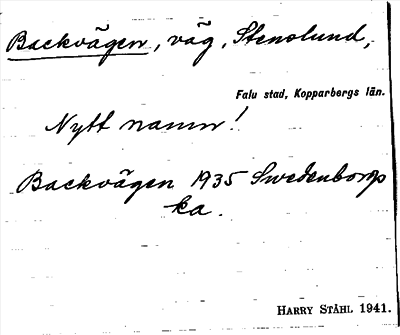 Backvägen, väg, Stenslund,
Falu stad, Kopparbergs län.
Nytt namn!
Backvägen 1935 Swedenborgs
ka.
HARRY STÅHL 1941.